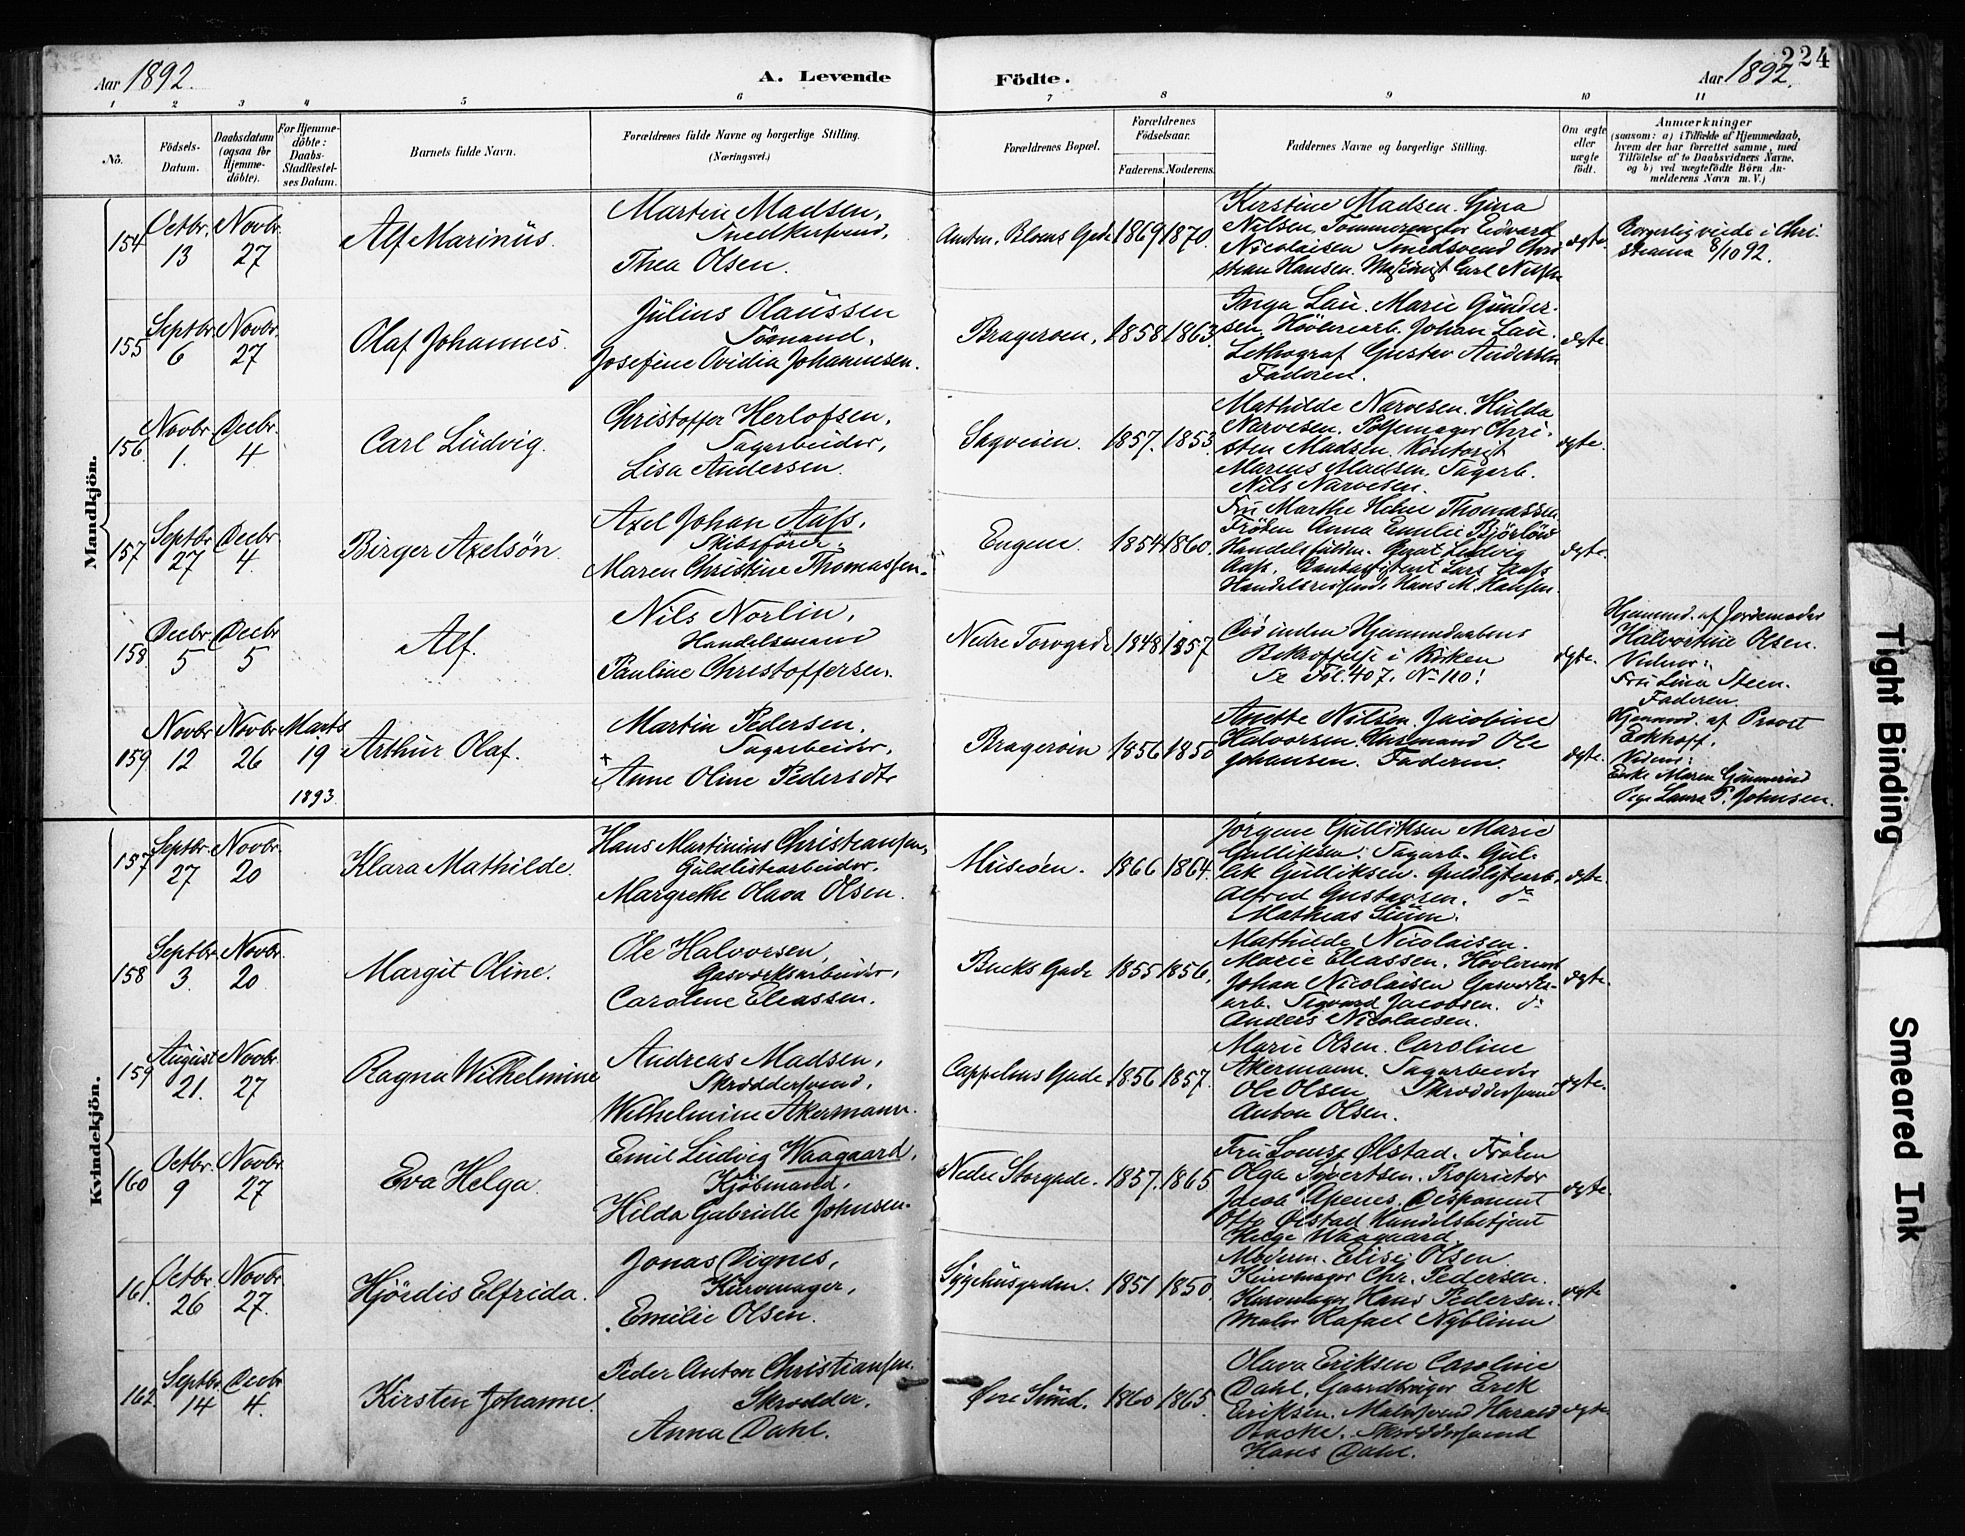 Aar 1892.
A. Levende
Födte.
224
Aar 1892.
1 2 3 4 5 6 7 8 9 10 11
No.
Födsels-
Datum.
Daabsdatum
(ogsaa for
Hjemme-
döbte).
For Hjemme-
döbte:
Daabs-
Stadfæstel-
ses Datum.
Barnets fulde Navn.
Forældrenes fulde Navne og borgerlige Stilling.
(Næringsvei.)
Forældrenes Bopæl.
Forældrenes
Födselsaar.
Faderens. Moderens.
Faddernes Navne og borgerlige Stilling.
Om ægte
eller
uægte
födt.
Anmærkninger
(saasom: a) i Tilfælde af Hjemmedaab,
hvem der har forrettet samme, med
Tilföielse af to Daabsvidners Navne,
og b) ved uægtefödte Börn An-
melderens Navn m. V.)
Mandkjön.
154
Octbr.
13
Novbr.
27
Alf Marinus.
Martin Madsen,
Snedkersvend,
Thea Olsen.
Antm. Bloms Gade
1869
1870.
Kerstine Madsen. Gina
Nilsen, Edvard
Nicolaisen Smedsvend Chri
stian Hansen. Carl Nilsen
ægte.
Borgerlig viede i Chri
stiania 8/10 92.
155
Septbr.
6
Novbr.
27
Olaf Johannes.
Julius Olaussen
Sömand,
Josefine Ovidia Johannesen.
Brageröen,
1858
1863.
Inga Lau. Marie Gunder-
sen, Hövlerearb. Johan Lau.
Lithograf Gustav Andersen
Faderen.
ægte.
156.
Novbr.
1.
Decbr.
4
Carl Ludvig.
Christoffer Herlofsen,
Sagarbeider,
Lisa Andersen.
Sagveien.
1857.
1853.
Mathilde Narvesen. Hulda
Narvesen. Pölsemager Chri-
sten Madsen. Kontorist
Marius Madsen, Sagarb.
Nils Narvesen.
ægte.
157
Septbr.
27
Decbr.
4
Birger Axelsön.
Axel Johan Aass,
Skibsförer,
Maren Christine Thomassen.
Engene.
1854
1860.
Fru Marthe Helne Thomassen
Fröken Anna Emilie Björlöw
Ludvig
Aass, Bankassistent Lars Aass
Handelsreisende Hans M. Hansen.
ægte.
158
Decbr.
5
Decbr.
5
Alf.
Nils Norlin,
Handelsmand
Pauline Christoffersen.
Nedre Torvgade
1848
1857
Död inden Hjemmedaabens
Bekræftelse i Kirken
Se Fol. 407. No 110!
ægte.
Hjemmed. af Jordemoder
Halvorline Olsen.
Vidner:
Fru Lina Steen.
Faderen.
159
Novbr.
12
Novbr.
26
Marts
19
1893.
Arthur Olaf.
Martin Pedersen.
Sagarbeider,
+
Anne Oline Pedersdtr
Brageröen
1856
1850
Anette Nilsen. Jacobine
Halvorsen. Husmand Ole
Johansen. Faderen.
ægte.
Hjemmed. af Provst
Eckhoff.
Vidner:
Enke Maren Gömmerud
Pige Laura P. Johnsen.
Kvindekjön.
157
Septbr.
27
Novbr.
20
Klara Mathilde.
Hans Martinius Christiansen,
Guldlistearbeider.
Margrethe Olava Olsen.
Museöen.
1866
1864.
Jörgine Gulliksen Marie
Gulliksen. Sagarb. Gul-
lik Gulliksen. Guldlistearb.
Alfred Gustavsen. do
Mathias Siem.
ægte.
158
Septbr.
3.
Novbr.
20
Margit Oline.
Ole Halvorsen,
Gasverksarbeider,
Caroline Eliassen.
Bucks Gade
1855
1856.
Mathilde Nicolaisen.
Marie Eliassen. Hövlerearb
Johan Nicolaisen Gasverks-
arb. Sigvard Jacobsen. do
Anders Nicolaisen.
ægte.
159
August
21.
Novbr.
27
Ragna Wilhelmine
Andreas Madsen,
Skræddersvend,
Wilhelmine Akermann.
Cappelens Gade
1856
1857.
Marie Olsen. Caroline
Akermann. Sagarbeider
Ole Olsen Skræddersvend
Anton Olsen.
ægte.
160
Octbr.
9
Novbr.
27
Eva Helga.
Emil Ludvig Waagaard,
Kjöbmand,
Hilda Gabrielle Johnsen.
Nedre Storgade.
1857.
1865
Fru Louise Ølstad. Fröken
Olga Syvertsen. Proprietær
Jacob Apenes. Disponent
Otto Ølstad Handelsbetjent
Helge Waagaard
ægte.
161.
Octbr.
26
Novbr.
27.
Hjördis Elfrida.
Jonas Dignes,
Kurvmager,
Emilie Olsen.
Sygehusgaden.
1851
1850.
Moderen. Elise Olsen
Kurvmager Chr. Pedersen.
Kurvmager Hans Pedersen.
Maler Rafael Nyblinn
ægte
162
Septbr.
14
Decbr.
4.
Kirsten Johanne.
Peder Anton Christiansen.
Skrædder.
Anna Dahl.
Øvre Sund.
1860
1865.
Olava Eriksen Caroline
Dahl, Gaardbruger Erik
Eriksen. Malersvend Harald
Bache. Skræddersvend
Hans Dahl.
ægte
Tight Binding
Smeared Ink